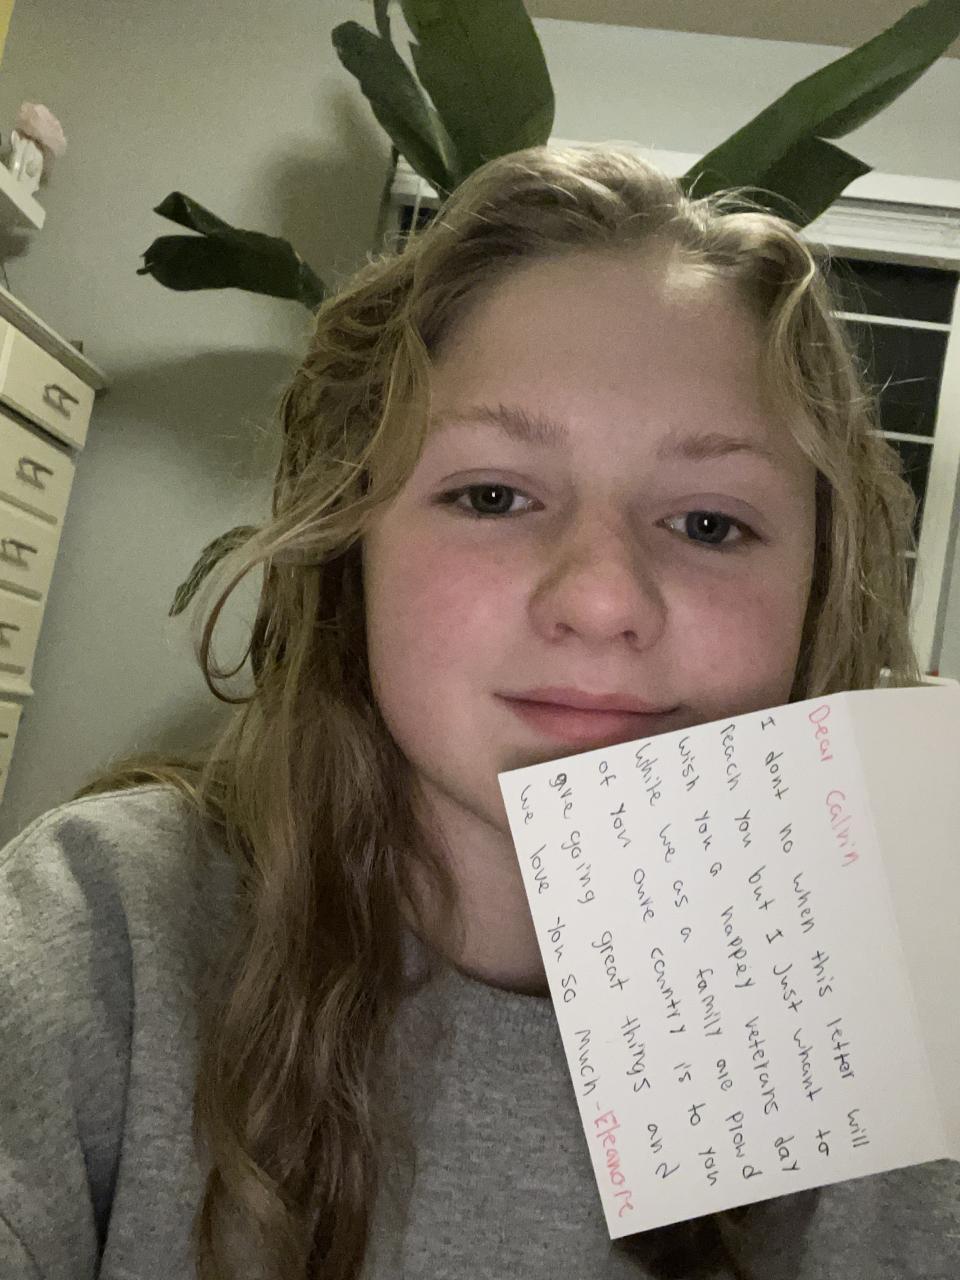 Dear Calvin
I dont no when this letter will
reach you but I Just whant to
wish you a happéy veterans day
While we as a family are plowd
of you oure country is to you
are going great things and
we love you so much -Eleanore